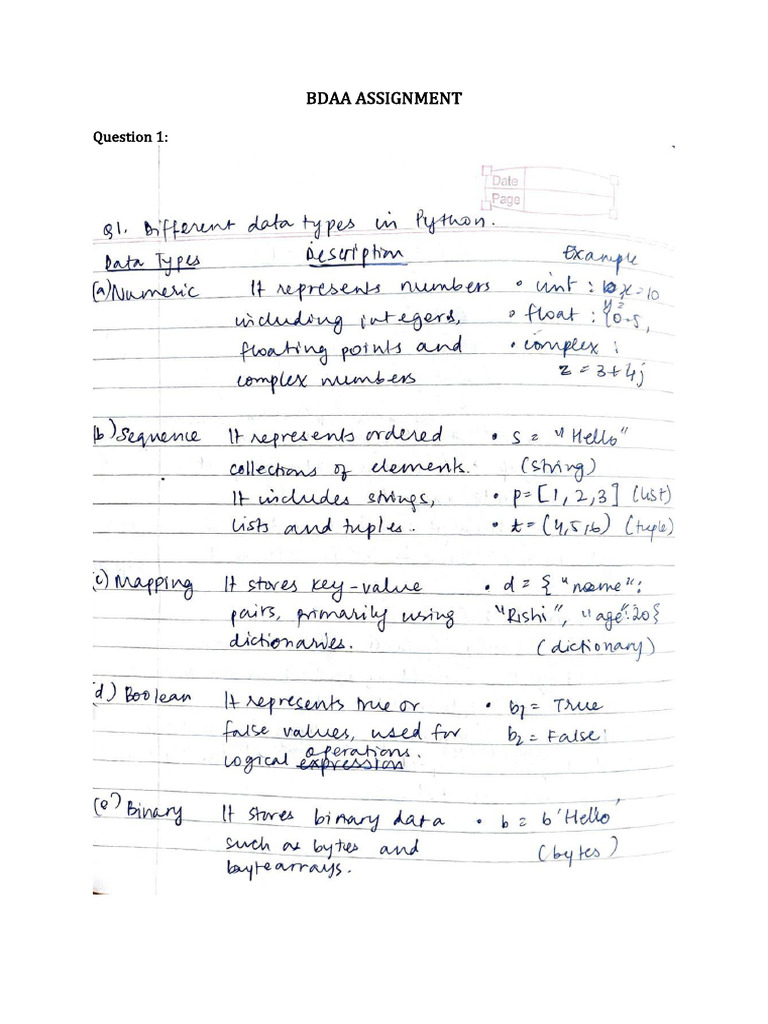 BDAA ASSIGNMENT
Question 1:
Date
Page
Q1. Different data types in Python.
Data Types Description Example
(a) Numeric It represents numbers • int : x = 10
including integers, • float : y = 10.5,
floating points and • complex :
complex numbers z = 3+4j
(b) Sequence It represents ordered • s = "Hello"
collections of elements. (string)
It includes strings, • p = [1, 2, 3] (list)
lists and tuples. • t = (4,5,6) (tuple)
(c) Mapping It stores key-value • d = { "name":
pairs, primarily using "Rishi", "age":20}
dictionaries. (dictionary)
(d) Boolean It represents true or • b1 = True
false values, used for b2 = False
operations.
logical expression
(e) Binary It stores binary data • b = b'Hello'
such as bytes and (bytes)
bytearrays.